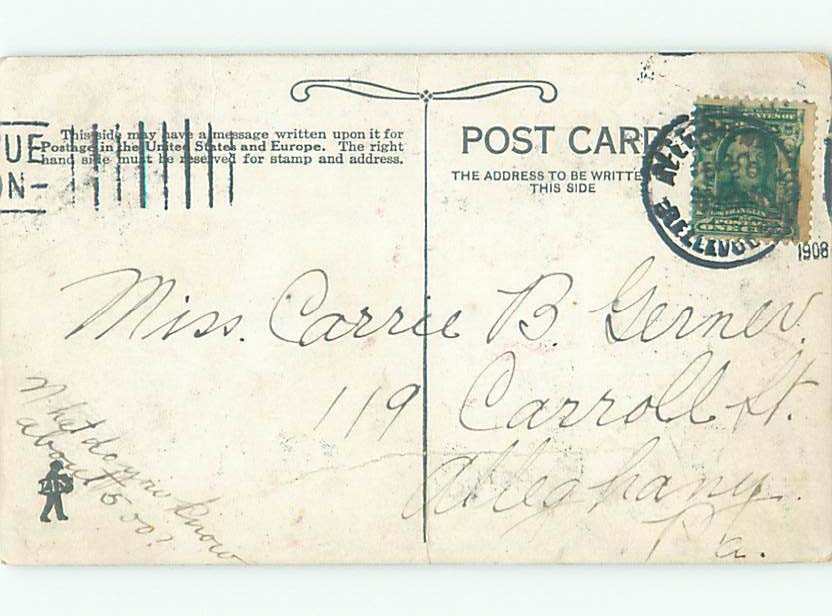 UE
ON-
This side may have a message written upon it for
Postage in the United States and Europe. The right
hand side must be reserved for stamp and address.
POST CARD
THE ADDRESS TO BE WRITTEN
THIS SIDE
FRANKLIN
POSTAGE
ONE CENT
BELLEVUE
1908
Miss. Carrie B. Gerner.
119 Carroll St.
Alleghany.
Pa.
What do you know
about $500?